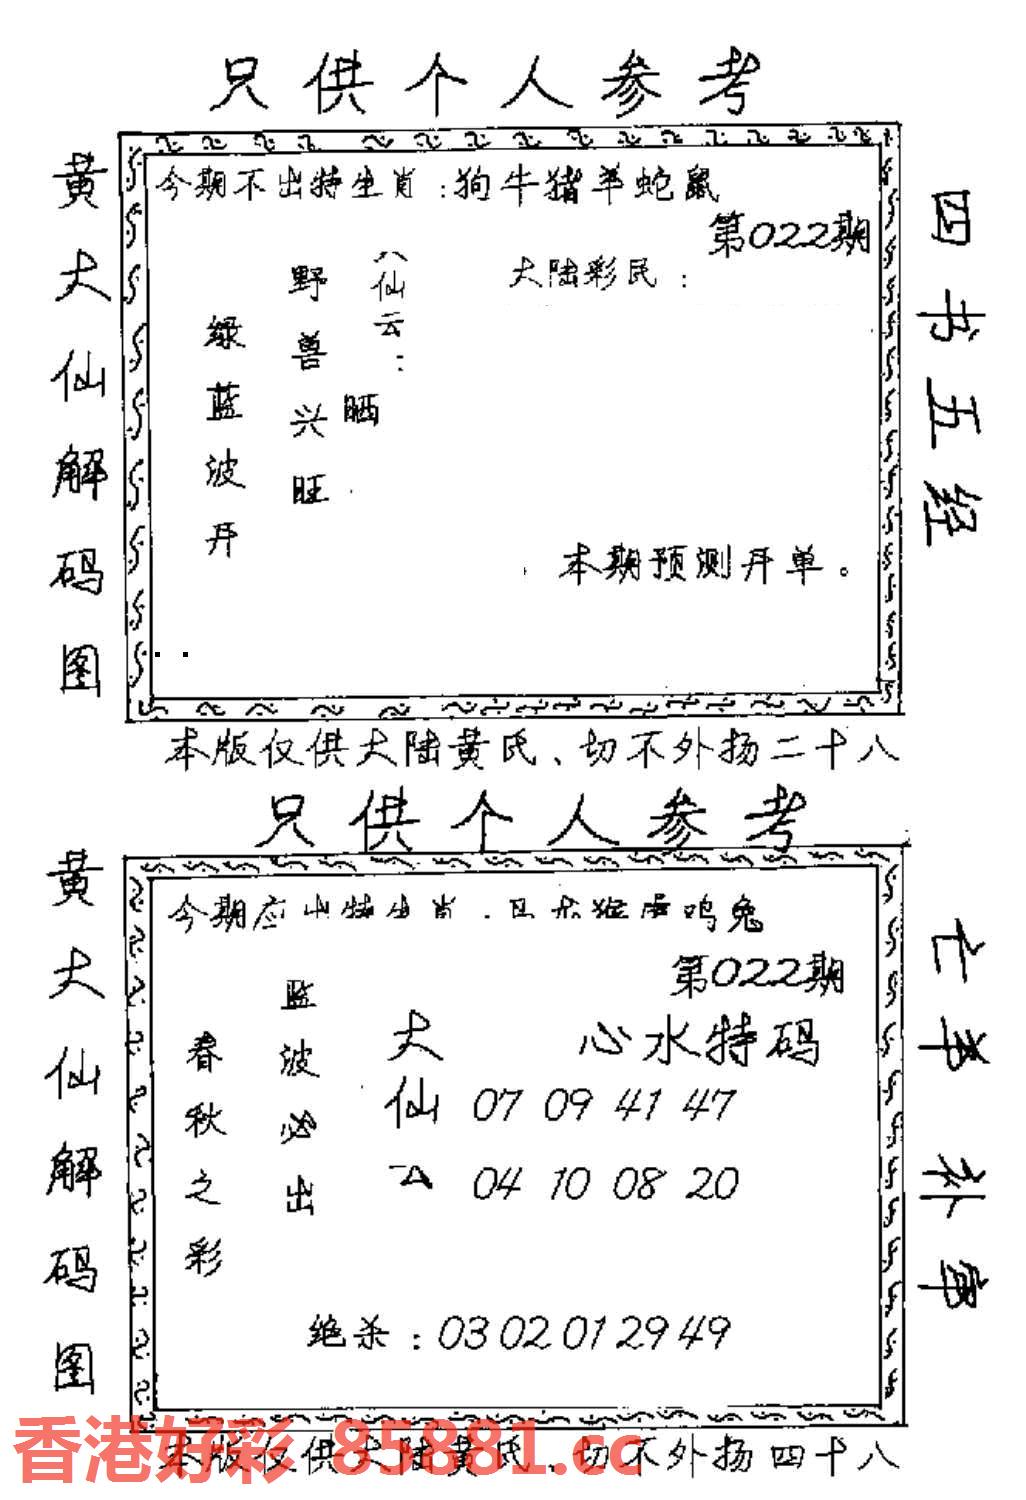 只供个人参考
黄大仙解码图
今期不出特生肖：狗牛猪羊蛇鼠
第022期
四书五经
大陆彩民：
八仙云：
晒
野兽兴旺
绿蓝波开
本期预测开单。
本版仅供大陆黄氏、切不外扬二十八
只供个人参考
黄大仙解码图
今期应出特生肖：马龙猴虎鸡兔
第022期
亡羊补牢
心水特码
大仙云
07 09 41 47
04 10 08 20
蓝波必出
春秋之彩
绝杀：03 02 01 29 49
香港好彩 85881.cc
本版仅供大陆黄氏、切不外扬四十八